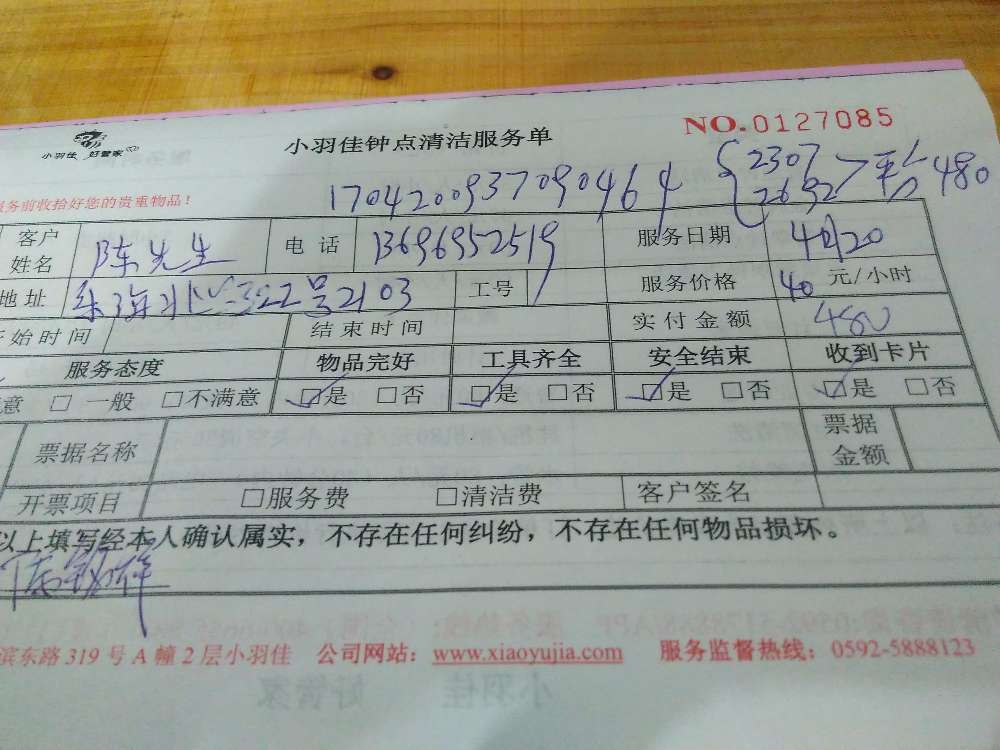 小羽佳 好管家
小羽佳钟点清洁服务单
NO.0127085
服务前收拾好您的贵重物品！
1704200937090464 {2307 2692> 平台480
客户姓名 陈先生 电话 13696952519 服务日期 4月20
地址 322号2103 工号 服务价格 40元/小时
开始时间 结束时间 实付金额 480
服务态度 物品完好 工具齐全 安全结束 收到卡片
意 □ 一般 □不满意 ☑是 □否 ☑是 □否 ☑是 □否 ☑是 □否
票据名称 票据金额
开票项目 □服务费 □清洁费 客户签名
以上填写经本人确认属实，不存在任何纠纷，不存在任何物品损坏。
滨东路 319 号 A 幢 2 层小羽佳 公司网站：www.xiaoyujia.com 服务监督热线：0592-5888123